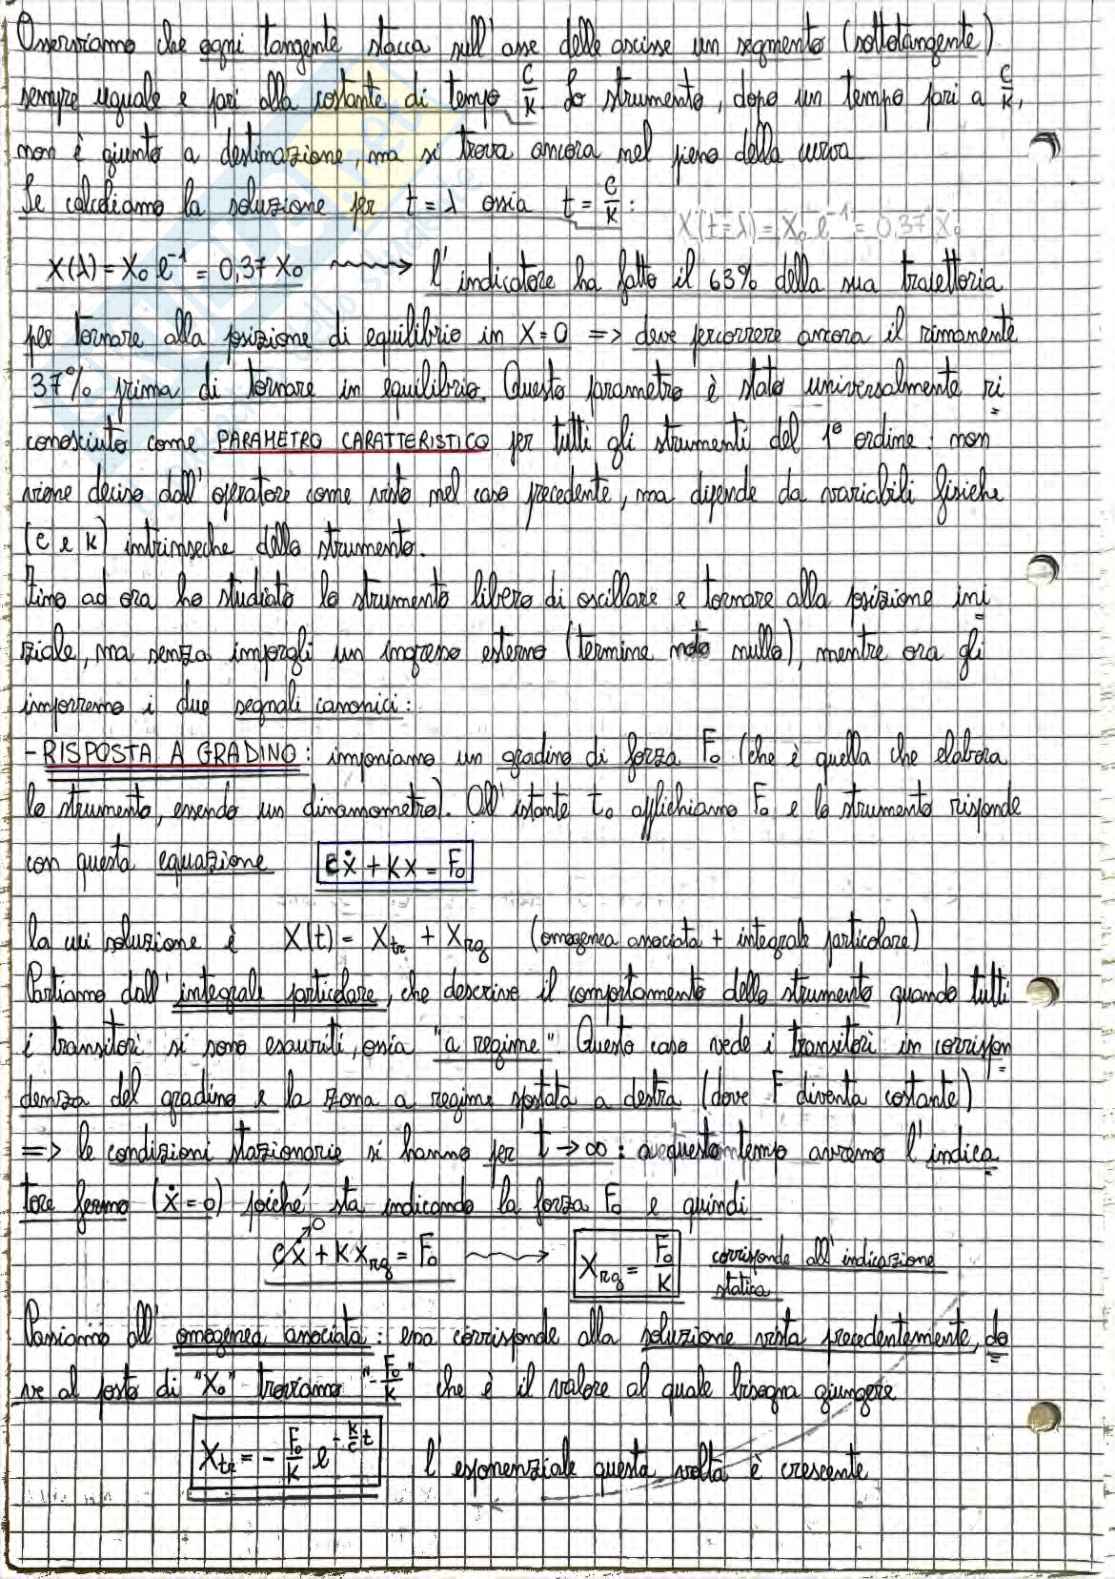 Osserviamo che ogni tangente stacca sull'asse delle ascisse un segmento (sottotangente)
sempre uguale e pari alla costante di tempo c/k. Lo strumento, dopo un tempo pari a c/k,
non è giunto a destinazione, ma si trova ancora nel pieno della curva
Se calcoliamo la soluzione per t = λ ossia t = c/k :
X(t=λ) = X₀ e⁻¹ = 0,37 X₀
X(λ) = X₀ e⁻¹ = 0,37 X₀ ⟿ l'indicatore ha fatto il 63% della sua traiettoria
per tornare alla posizione di equilibrio in X=0 => deve percorrere ancora il rimanente
37% prima di tornare in equilibrio. Questo parametro è stato universalmente ri
conosciuto come PARAMETRO CARATTERISTICO per tutti gli strumenti del 1° ordine: non
viene deciso dall'operatore come visto nel caso precedente, ma dipende da variabili fisiche
(c e k) intrinseche dello strumento.
Fino ad ora ho studiato lo strumento libero di oscillare e tornare alla posizione ini
ziale, ma senza imporgli un ingresso esterno (termine noto nullo), mentre ora gli
imporremo i due segnali canonici:
- RISPOSTA A GRADINO: imponiamo un gradino di forza F₀ (che è quella che elabora
lo strumento, essendo un dinamometro). All'istante t₀ applichiamo F₀ e lo strumento risponde
con questa equazione cẋ + kx = F₀
la cui soluzione è X(t) = X_tr + X_rg (omogenea associata + integrale particolare)
Partiamo dall'integrale particolare, che descrive il comportamento dello strumento quando tutti
i transitori si sono esauriti, ossia "a regime". Questo caso vede i transitori in corrispon
denza del gradino e la zona a regime spostata a destra (dove F diventa costante)
=> le condizioni stazionarie si hanno per t → ∞ : a questo tempo avremo l'indica
tore fermo (ẋ = 0) poiché sta indicando la forza F₀ e quindi
0
cẋ + k X_rg = F₀ ⟿ X_rg = F₀/k corrisponde all'indicazione
statica
Passiamo all'omogenea associata: essa corrisponde alla soluzione vista precedentemente, do
ve al posto di "X₀" troviamo "-F₀/k" che è il valore al quale bisogna giungere
X_tr = - F₀/k e^(-k/c t) l'esponenziale questa volta è crescente